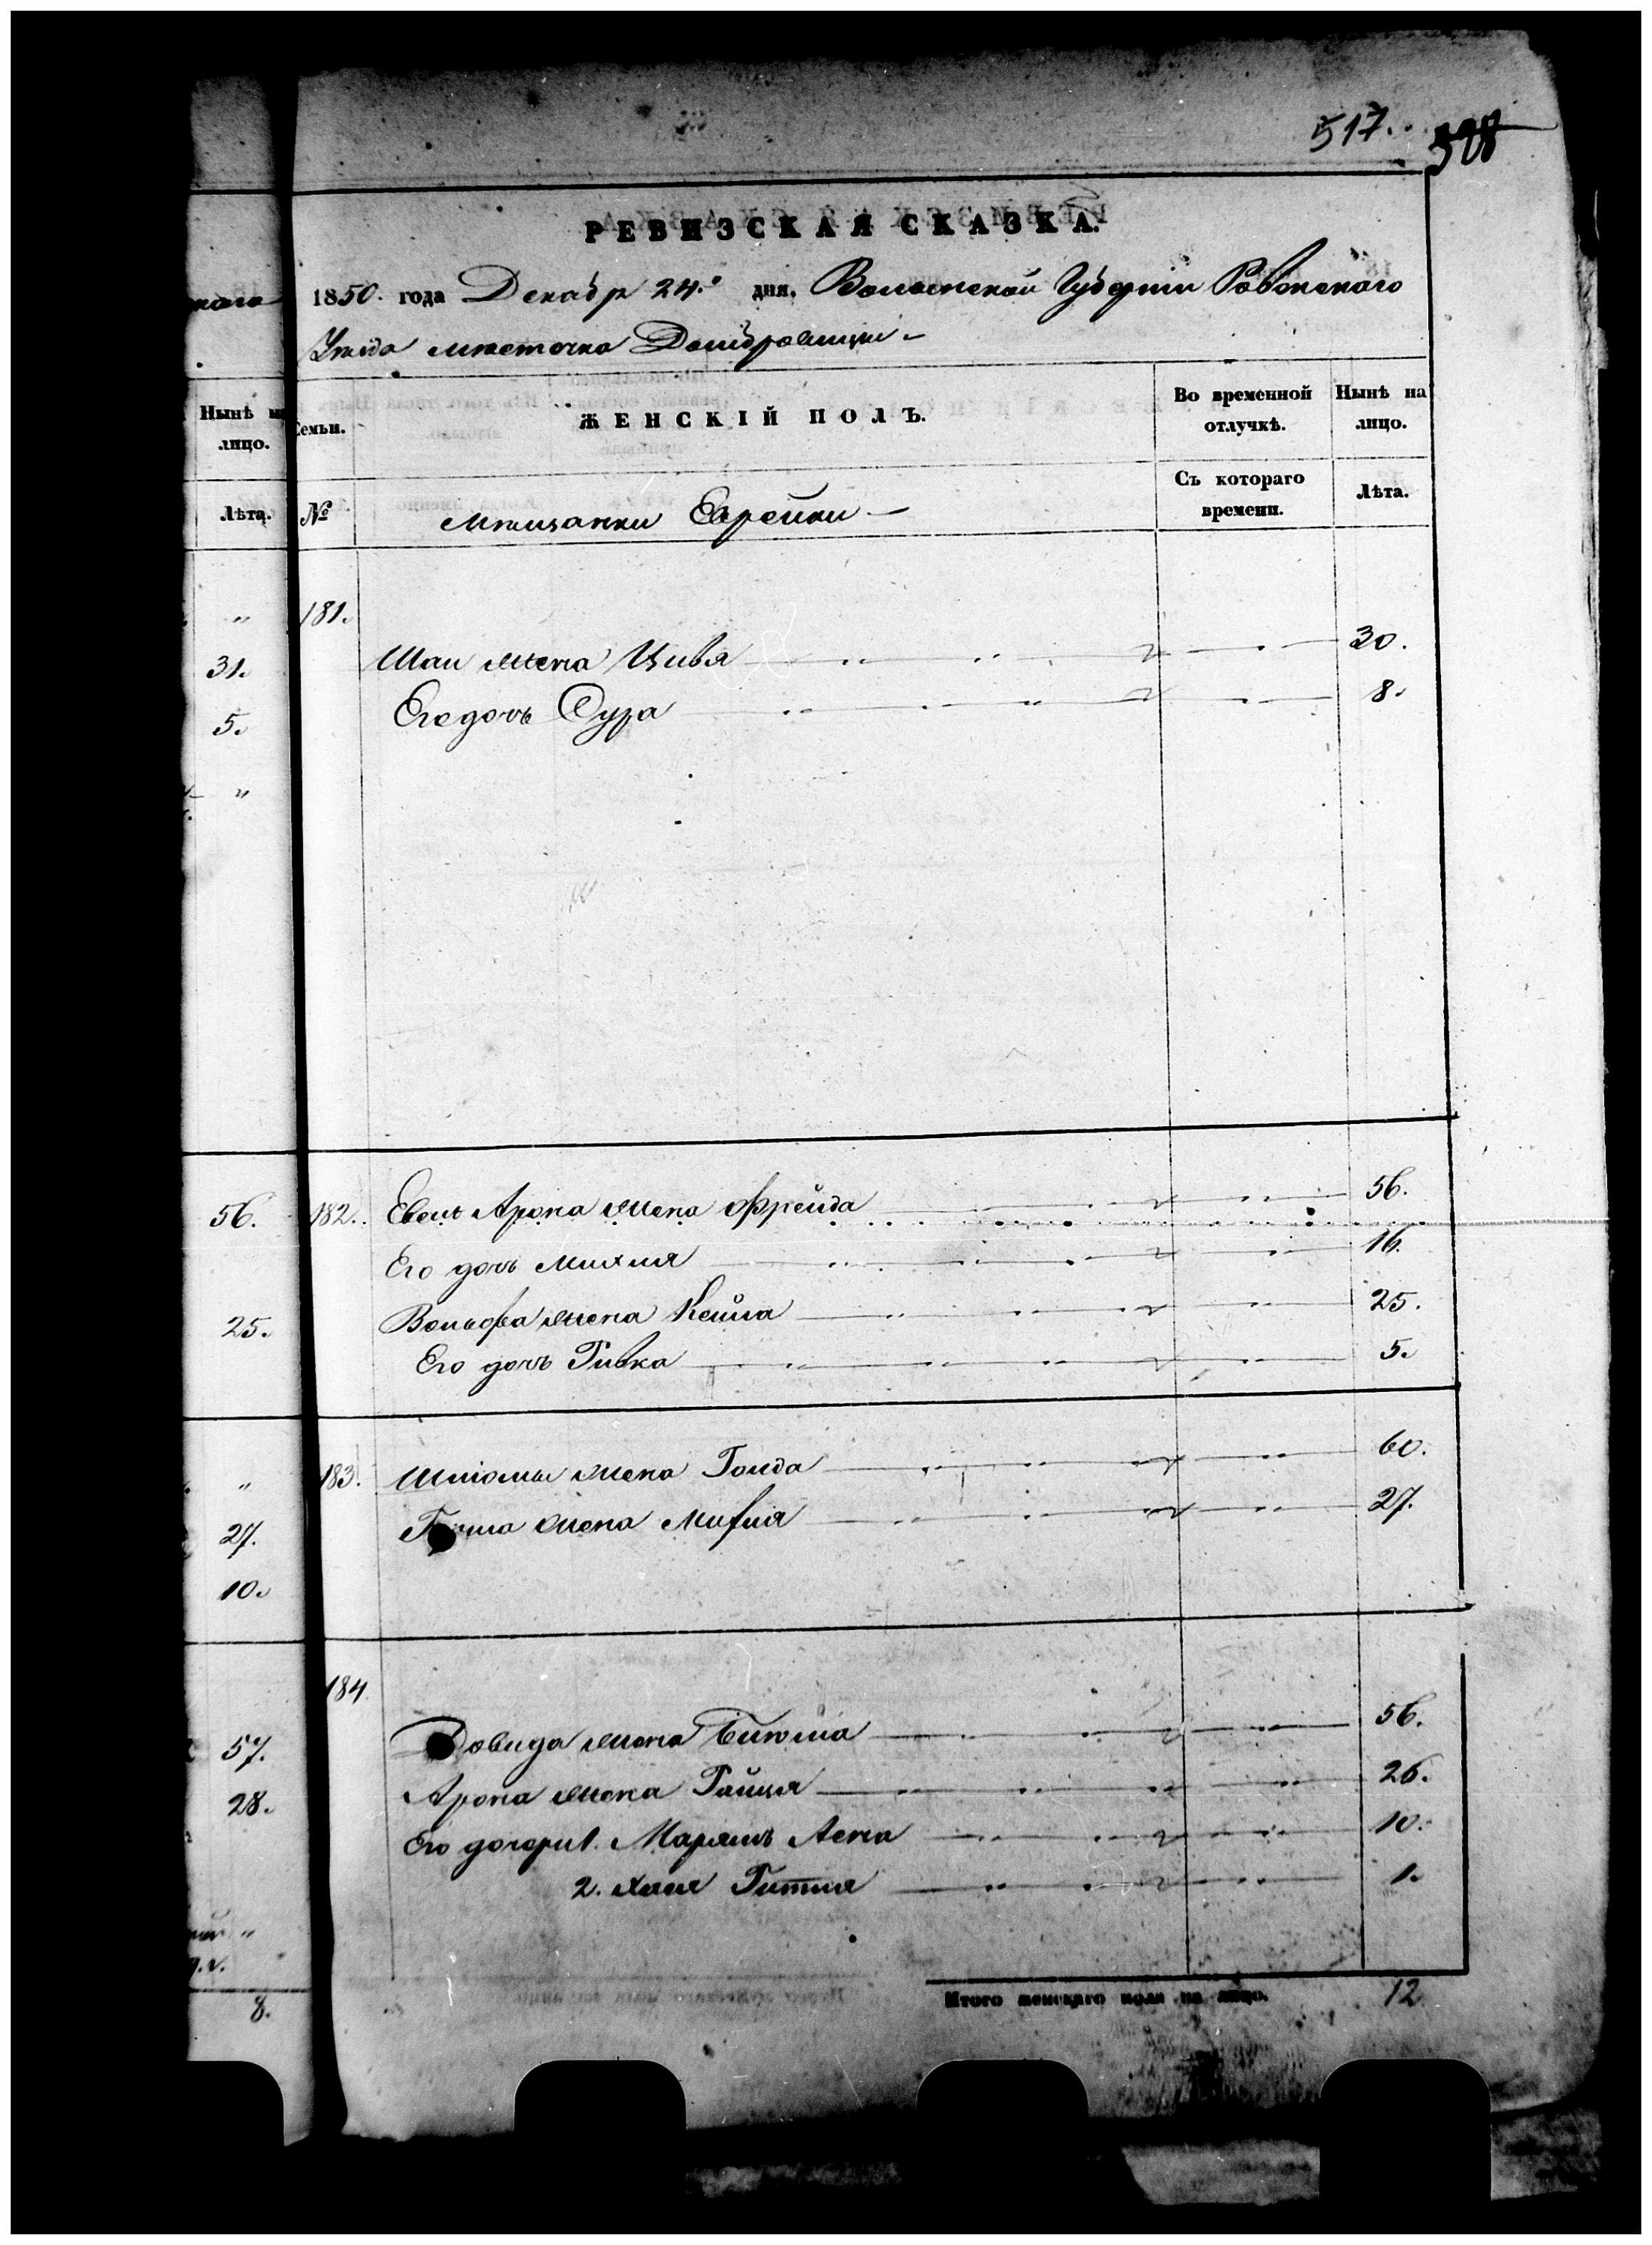 517. 528
РЕВИЗСКАЯ СКАЗКА.
1850. года Декабр 24.º дня, Волынской Губерніи Ровенского
Уезда местечка Домбровицы
Нынѣ на лицо.
Семьи.
ЖЕНСКІЙ ПОЛЪ.
Во временной отлучкѣ.
Нынѣ на лицо.
Лѣта.
№
Мѣщанки Еврейки
Съ котораго времени.
Лѣта.
" 181.
31. Шаи жена Цивя 30.
5. Его дочь Сура 8.
"
56. 182. Арона жена Фрейда 56.
Его дочь Михля 16.
25. Вольфа жена Кейла 25.
Его дочь Ривка 5.
" 183. Шліомы жена Голда 60.
27. жена 27.
10.
184.
57. Довида жена 56.
28. Арона жена 26.
Его дочери 1. Маріямъ 10.
2. Хая Гитля 1.
8.
Итого женскаго пола на лицо. 12